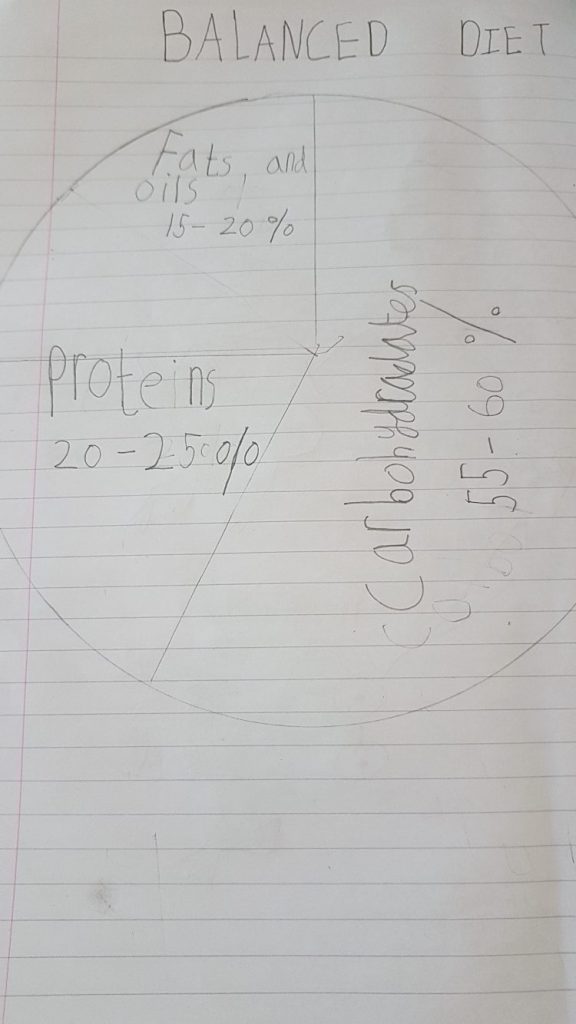 BALANCED DIET
Fats, and
oils
15-20%
Proteins
20-25%
Carbohydraates
55-60%